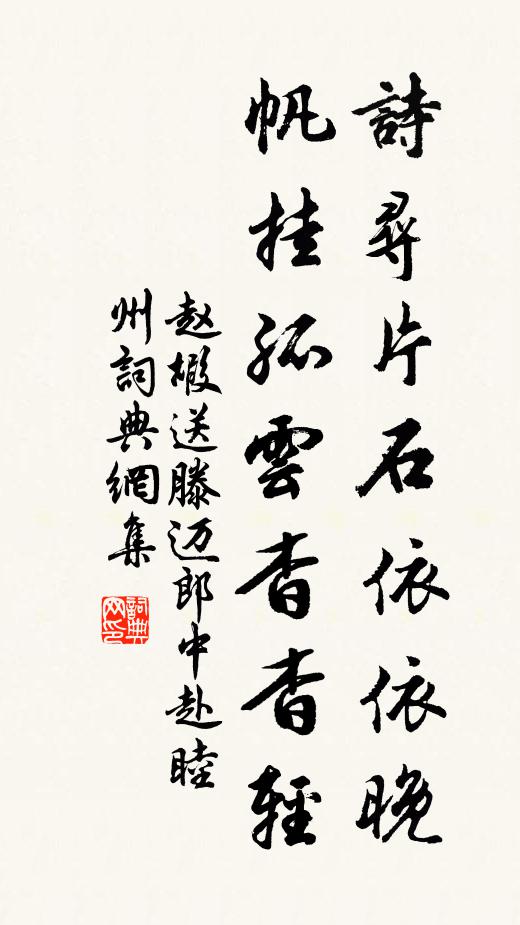 詩尋片石依依晚
帆挂孤雲杳杳輕
赵嘏送滕迈郎中赴睦
州詞典網集
詞典
网印